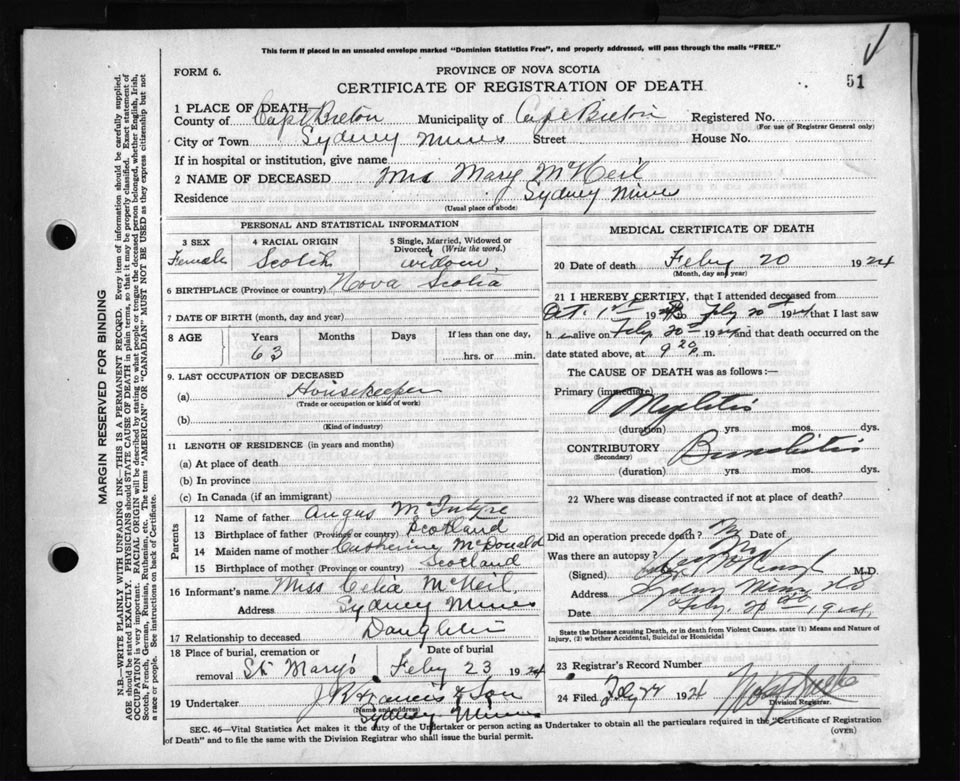 This form if placed in an unsealed envelope marked "Dominion Statistics Free", and properly addressed, will pass through the mails "FREE."
51
FORM 6.
PROVINCE OF NOVA SCOTIA
CERTIFICATE OF REGISTRATION OF DEATH
1 PLACE OF DEATH
County of Cape Breton Municipality of Cape Breton Registered No.
(For use of Registrar General only)
City or Town Sydney Mines Street House No.
If in hospital or institution, give name
2 NAME OF DECEASED Mrs Mary McNeil
Residence Sydney Mines
(Usual place of abode)
PERSONAL AND STATISTICAL INFORMATION
3 SEX 4 RACIAL ORIGIN 5 Single, Married, Widowed or Divorced, (Write the word.)
Female Scotch widow
6 BIRTHPLACE (Province or country) Nova Scotia
7 DATE OF BIRTH (month, day and year)
8 AGE Years Months Days If less than one day,
63 hrs. or min.
9. LAST OCCUPATION OF DECEASED
(a) Housekeeper
(Trade or occupation or kind of work)
(b)
(Kind of industry)
11 LENGTH OF RESIDENCE (in years and months)
(a) At place of death
(b) In province
(c) In Canada (if an immigrant)
Parents
12 Name of father Angus McIntyre
13 Birthplace of father (Province or country) Scotland
14 Maiden name of mother Catherine McDonald
15 Birthplace of mother (Province or country) Scotland
16 Informant's name Miss Celia McNeil
Address Sydney Mines
17 Relationship to deceased Daughter
18 Place of burial, cremation or removal St. Mary's Date of burial Feby 23 1924
19 Undertaker J R Francis & Son
(Name and address)
Sydney Mines
MEDICAL CERTIFICATE OF DEATH
20 Date of death Feby 20 1924
(Month, day and year)
21 I HEREBY CERTIFY, that I attended deceased from
Oct. 1st 192 to Feby 20th 1924 that I last saw
h er alive on Feby 20th 1924 and that death occurred on the
date stated above, at 9 20 P. m.
The CAUSE OF DEATH was as follows:—
Primary (immediate) Myelitis
(duration) yrs mos. dys.
CONTRIBUTORY Bronchitis
(Secondary)
(duration) yrs. mos. dys.
22 Where was disease contracted if not at place of death?
Did an operation precede death? No Date of
Was there an autopsy? No
(Signed) M.D.
Address Sydney Mines NS
Date Feby. 1924
State the Disease causing Death, or in death from Violent Causes. state (1) Means and Nature of Injury, (2) whether Accidental, Suicidal or Homicidal
23 Registrar's Record Number
24 Filed Feby 22 1924
Division Registrar.
SEC. 46—Vital Statistics Act makes it the duty of the Undertaker or person acting as Undertaker to obtain all the particulars required in the "Certificate of Registration of Death" and to file the same with the Division Registrar who shall issue the burial permit.
(OVER)
MARGIN RESERVED FOR BINDING
N.B.—WRITE PLAINLY WITH UNFADING INK—THIS IS A PERMANENT RECORD. Every item of information should be carefully supplied.
AGE should be stated EXACTLY. PHYSICIANS should STATE CAUSE OF DEATH in plain terms, so that it may be properly classified. Exact statement of
OCCUPATION is very important. RACIAL ORIGIN will be described by stating to what people or tongue the deceased person belonged, whether English, Irish,
Scotch, French, German, Russian, Ruthenian, etc. The terms "AMERICAN" OR "CANADIAN" MUST NOT BE USED as they express citizenship but not
a race or people. See instructions on back of Certificate.